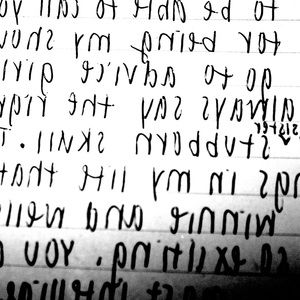 to be able to call you
for being my shou
go to advice girl
always say the righ
sister
stubborn skull.
ngs in my life that
winner and welln
so exciting. you